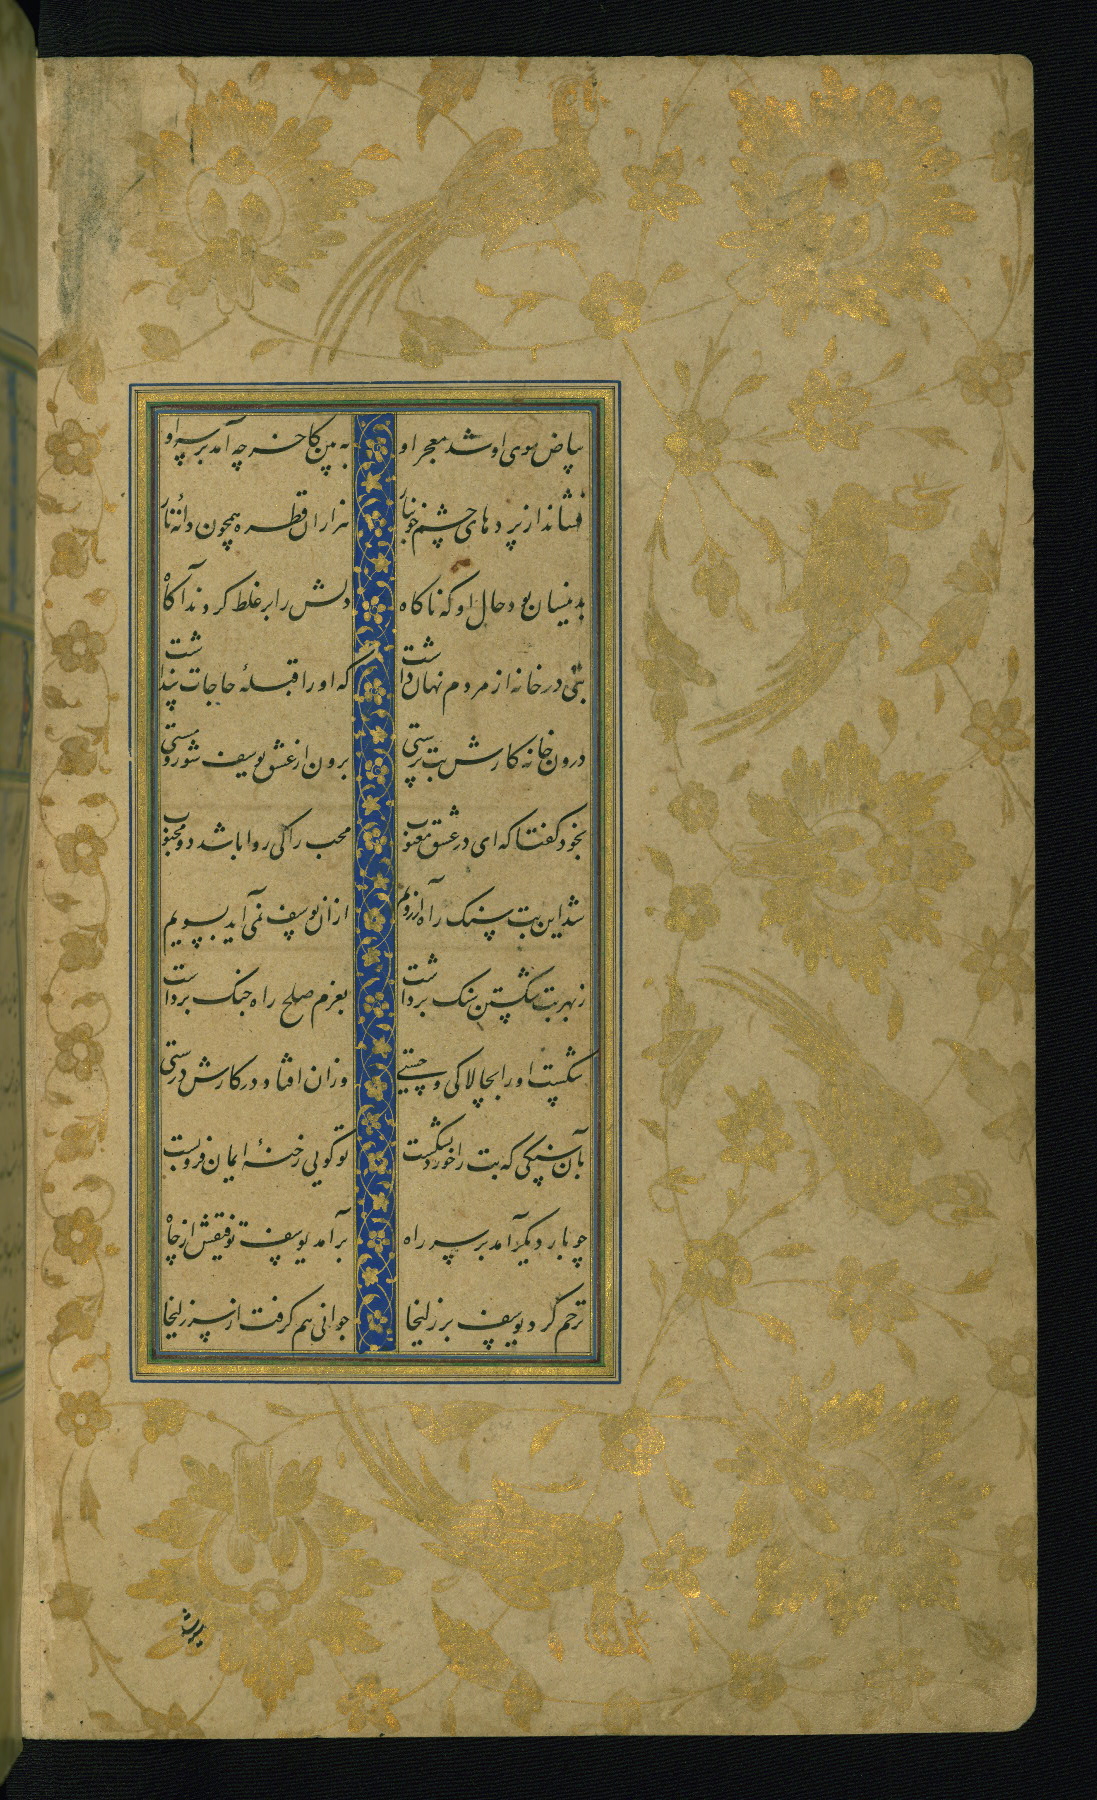 بیاض موی او شد معجر او به مپن کاخر چه آمد بر سر او
فشاند از پردهای چشم خونبار هزاران قطره همچون دانه نار
بدینسان بود حال او که ناکاه دلش را بر غلط کردند آکاه
بتی در خانه از مردم نهان داشت که او را قبلهٔ حاجات پنداشت
درون خانه کارش بت پرستی برون از عشق یوسف شور و مستی
بخود کفتا که ای در عشق معیوب محب را کی روا باشد دو محبوب
شد این بت سنک راه آرزویم ازان یوسف نمی آید بسویم
ز بهر بت شکستن سنک برداشت بعزم صلح راه جنک برداشت
شکست او را بچالاکی و چستی وزان افتاد در کارش درستی
بآن سنکی که بت را خورد بشکست تو کویی رخنهٔ ایمان فرو بست
چو بار دیکر آمد بر سر راه برآمد یوسف توفیقش از چاه
ترحم کرد یوسف بر زلیخا جوانی هم کرفت از سر زلیخا